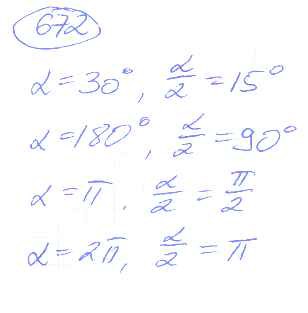 672
α = 30°, α/2 = 15°
α = 180°, α/2 = 90°
α = π, α/2 = π/2
α = 2π, α/2 = π